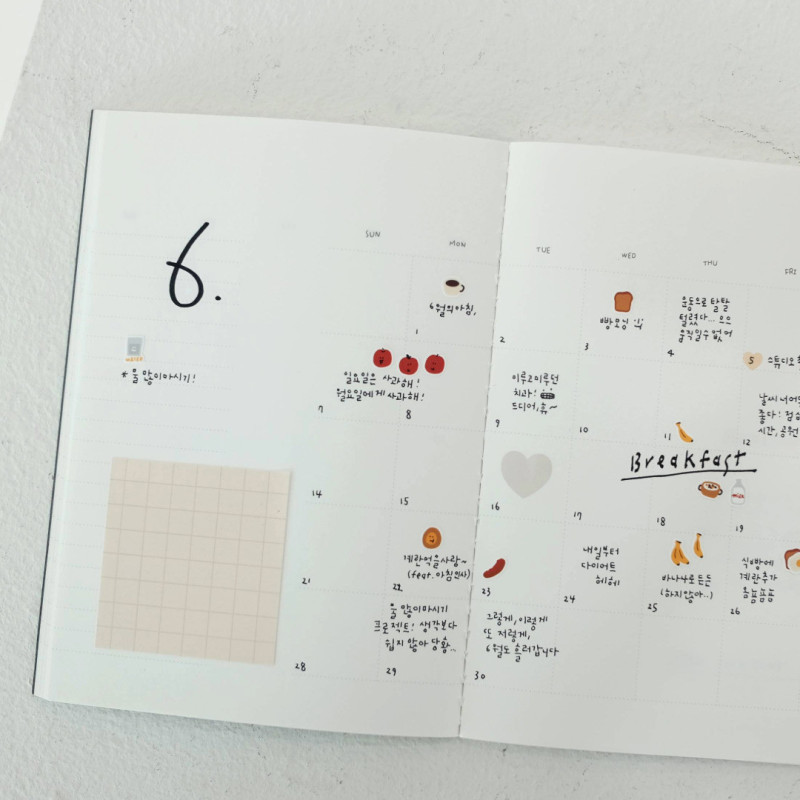 6.
SUN MON TUE WED THU FRI
6월의 아침,
1
2
빵모닝
3
운동으로 탈탈
털렸다... 으으
움직일 수 없어
4
5 스튜디오
WATER
* 물 많이 마시기!
일요일은 사과해!
월요일에게 사과해!
7
8
이루고 미루던
치과!
드디어, 휴~
9
10
11
날씨 너어
좋다! 점심
시간, 공원
12
Breakfast
14
15
16
17
18
19
계란먹을사람~
(feat. 아침인사)
내일부터
다이어트
헤헤
바나나로 든든
(하지않아..)
식빵에
계란추가
냠냠냠
21
22
23
24
25
26
물 많이 마시기
프로젝트! 생각보다
쉽지 않아 당황...
그렇게, 이렇게
또 저렇게,
6월도 흘러갑니다
28
29
30